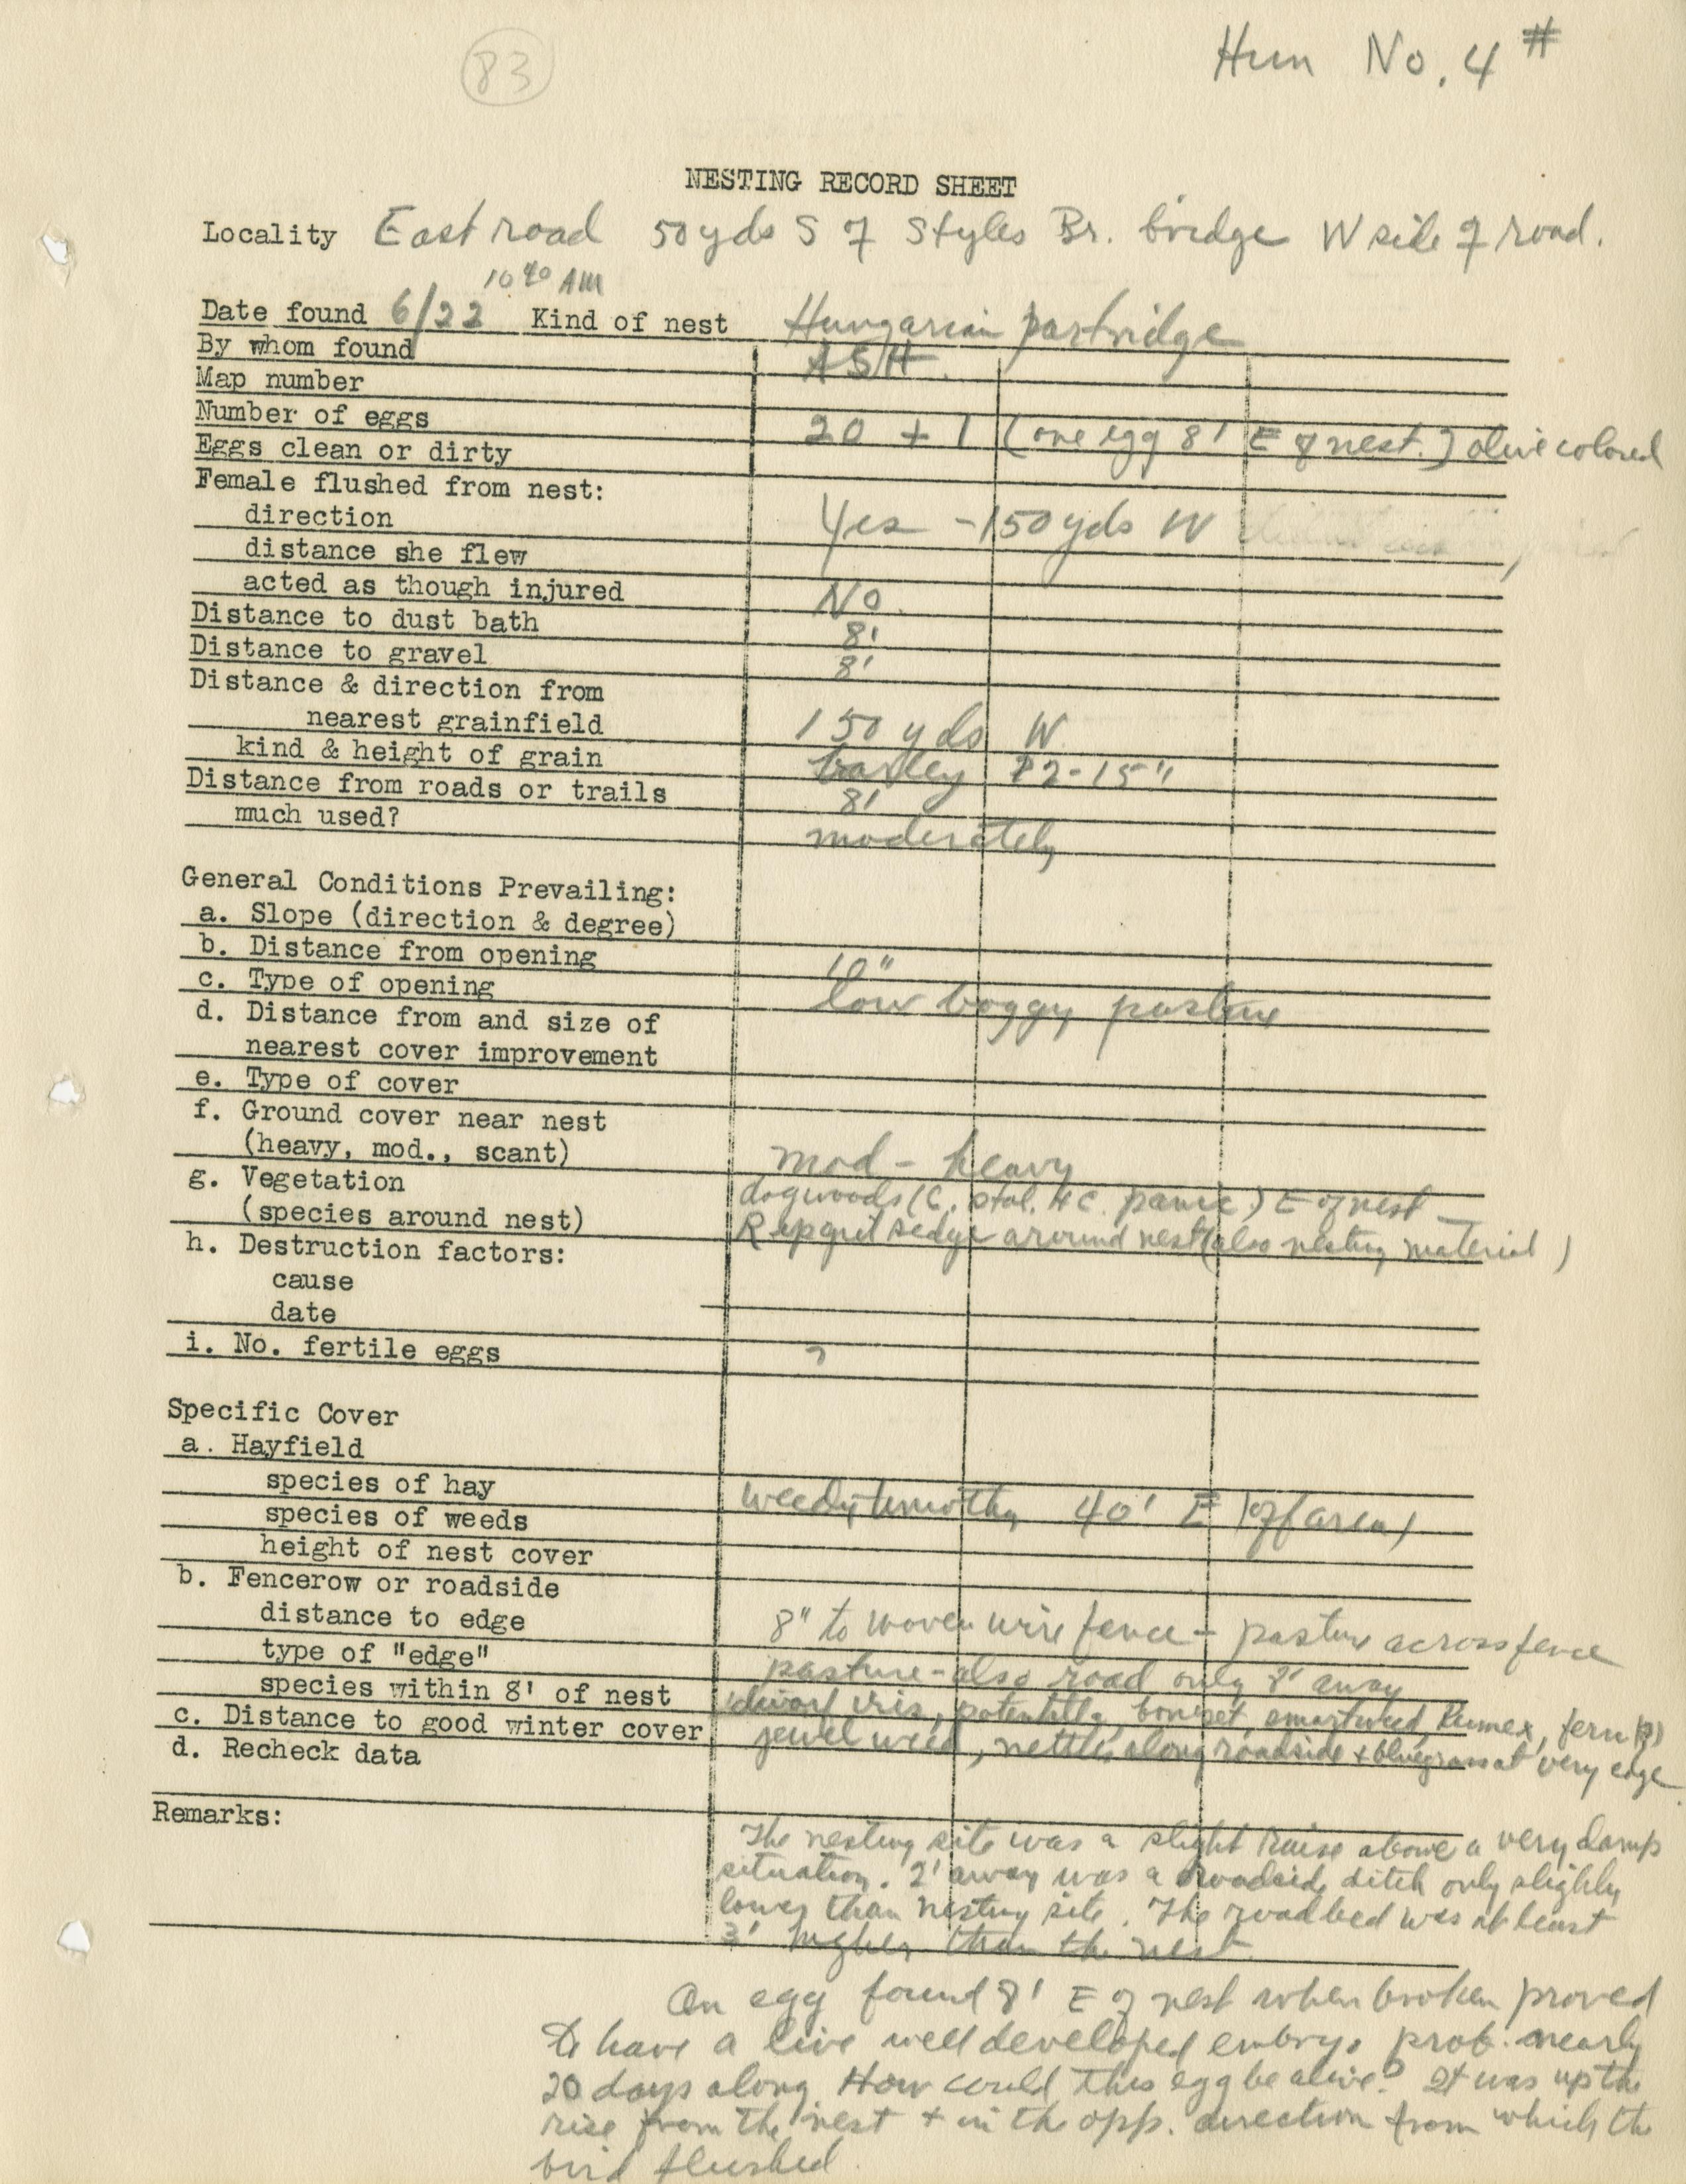 83
Hun No. 4 #
NESTING RECORD SHEET
Locality East road 50 yds S of Styles Br. bridge W side of road.
10 40 AM
Date found 6/22 Kind of nest Hungarian partridge
By whom found ASH.
Map number
Number of eggs 20 + 1 (one egg 8' E of nest.) olive colored
Eggs clean or dirty
Female flushed from nest:
direction Yes - 150 yds W
distance she flew
acted as though injured No.
Distance to dust bath 8'
Distance to gravel 8'
Distance & direction from
nearest grainfield 150 yds W
kind & height of grain barley 12-15"
Distance from roads or trails 8'
much used? moderately
General Conditions Prevailing:
a. Slope (direction & degree)
b. Distance from opening 10"
c. Type of opening low boggy pasture
d. Distance from and size of
nearest cover improvement
e. Type of cover
f. Ground cover near nest
(heavy, mod., scant) mod - heavy
g. Vegetation dogwoods (C. stol. & C. panic.) E of nest -
(species around nest) Ripgut sedge around nest (also nesting material)
h. Destruction factors:
cause
date
i. No. fertile eggs ?
Specific Cover
a. Hayfield
species of hay weedy timothy 40' E (of area)
species of weeds
height of nest cover
b. Fencerow or roadside
distance to edge 8" to woven wire fence - pasture across fence
type of "edge" pasture - also road only 8' away
species within 8' of nest dwarf iris, potentilla, boneset, smartweed, Rumex, fern
c. Distance to good winter cover jewel weed, nettle, along roadside + bluegrass at very edge
d. Recheck data
Remarks: The nesting site was a slight raise above a very damp
situation. 2' away was a roadside ditch only slighly
lower than nesting site. The roadbed was at least
3' higher than the nest.
An egg found 8' E of nest when broken proved
to have a live well developed embryo prob. nearly
20 days along. How could this egg be alive? It was up the
rise from the nest + in the opp. direction from which the
bird flushed.